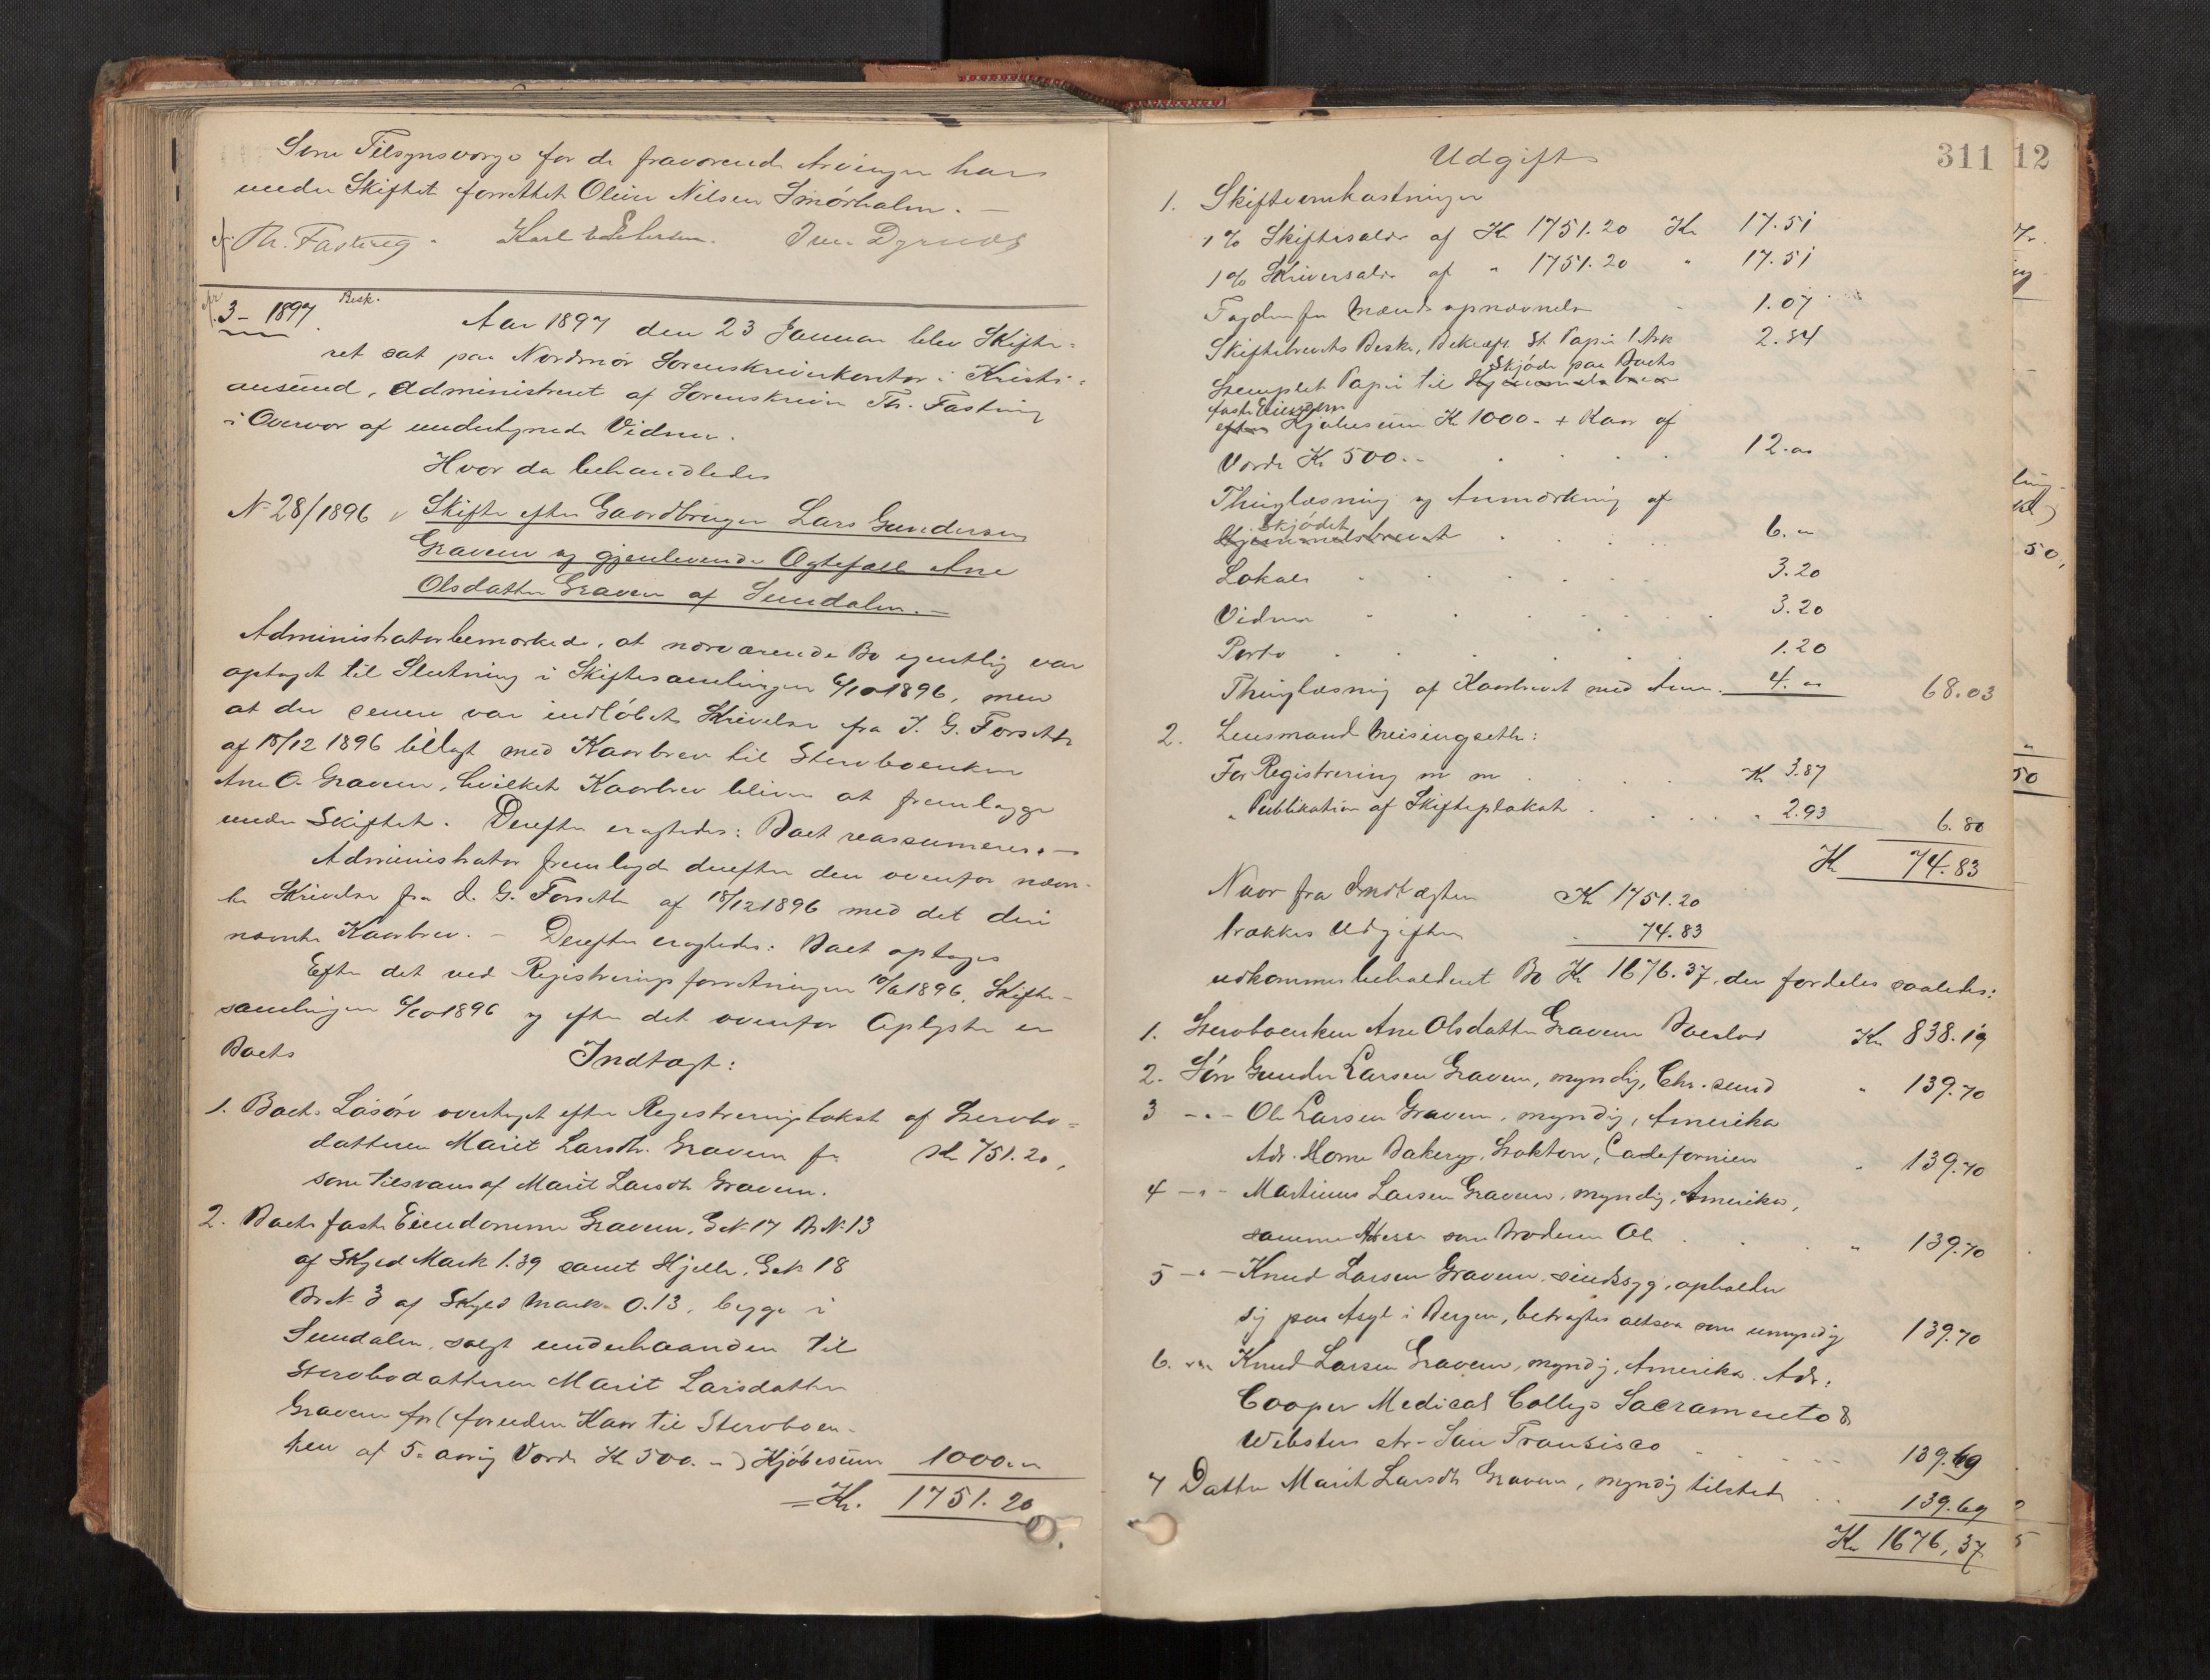 Som Tilsynsværge for de fraværende Arvinger har
under Skiftet forrettet Oliver Nilsen Smörholm. —
Th. Fasting. Karl Iver Dyrnes
3 – 1897. Besk.
Aar 1897 den 23 Januar blev Skifte=
ret sat paa Nordmör Sorenskriverkontor i Kristi=
ansund, administreret af Sorenskriver Th. Fasting
i Overvær af undertegnede Vidner.
Hvor da behandledes
No 28/1896 Skifte efter Gaardbruger Lars Gundersen
Gravem og gjenlevende Ægtefælle Ane
Olsdatter Gravem af Sundalen. —
Administrator bemærkede, at nærværende Bo egentlig var
optaget til Slutning i Skiftesamlingen 6/10 1896, men
at der senere var indløbet Skrivelse fra J. G. Forseth
af 18/12 1896 bilagt med Kaarbrev til Stervboenken
Ane O. Gravem, hvilket Kaarbrev bliver at fremlægge
under Skiftet. Derefter eragtedes: Boet reassumeres. —
Administrator fremlagde derefter den ovenfor nævn-
te Skrivelse fra J. G. Forseth af 18/12 1896 med det deri
nævnte Kaarbrev. — Derefter eragtedes: Boet optages
Efter det ved Registreringsforretningen 10/6 1896, Skifte-
samlingen 6/10 1896 og efter det ovenfor Oplyste er
Boets Indtægt:
1. Boets Løsøre overtaget efter Registreringstakst af Stervbo=
datteren Marit Larsdtr. Gravem for Kr 751.20,
som tilsvares af Marit Larsdtr Gravem.
2. Boets faste Eiendomme Gravem, G.No 17 B.No 13
af Skyld Mark 1.39 samt Hjelle, G.No 18
Br.No 3 af Skyld Mark 0.13, begge i
Sundalen, solgt underhaanden til
Stervbodatteren Marit Larsdatter
Gravem for (foruden Kaar til Stervboen-
ken af 5-aarig Værdi Kr 500. –) Kjöbesum 1000. "
= Kr. 1751. 20
Udgift 311 12
1. Skifteomkostninger
1% Skiftesalær af Kr 1751.20 Kr 17.51
1% Skriversalær af " 1751.20 " 17.51
Fogden for Mænds opnævnelse 1.07
Skiftebrevets Besk., Bekræft. St. Papir 1 Ark 2.34
Skjöde paa Boets
Stemplet Papir til Hjemmelsbrev
faste Eiendom
efter Kjøbesum Kr 1000. – + Kaar af
Værdi Kr 500. – 12. "
Thinglæsning og Anmærkning af
Skjödet
Hjemmelsbrevet 6. "
Lokale 3.20
Vidner 3.20
Porto 1.20
Thinglæsning af Kaarbrevet med Anm. 4. " 68.03
2. Lensmand Meisingseth:
For Registrering m m Kr 3.87
" Publikation af Skifteplakat 2.93 6.80
Kr 74.83
Naar fra Indtægten Kr 1751.20
trækkes Udgiften 74.83
udkommer beholdent Bo Kr 1676.37, der fordeles saaledes:
1. Stervboenken Ane Olsdatter Gravem Boeslod Kr 838.19
2. Søn Gunder Larsen Gravem, myndig, Chr.sund " 139.70
3 – " – Ole Larsen Gravem, myndig, Amerika
Adr. Home Bakery, Stokton, Cadefornien " 139.70
4 – " – Martinus Larsen Gravem, myndig, Amerika,
samme Adresse som Broderen Ole " 139.70
5 – " – Knud Larsen Gravem, sindssyg, opholder
sig paa Asyl i Bergen, betragtes altsaa som umyndig 139.70
6. – " – Knud Larsen Gravem, myndig, Amerika. Adr:
Cooper Medical College Sacramento &
Webster str. San Fransisco 139.69
7 Datter Marit Larsdtr Gravem, myndig tilstede 139.69
Kr 1676,37